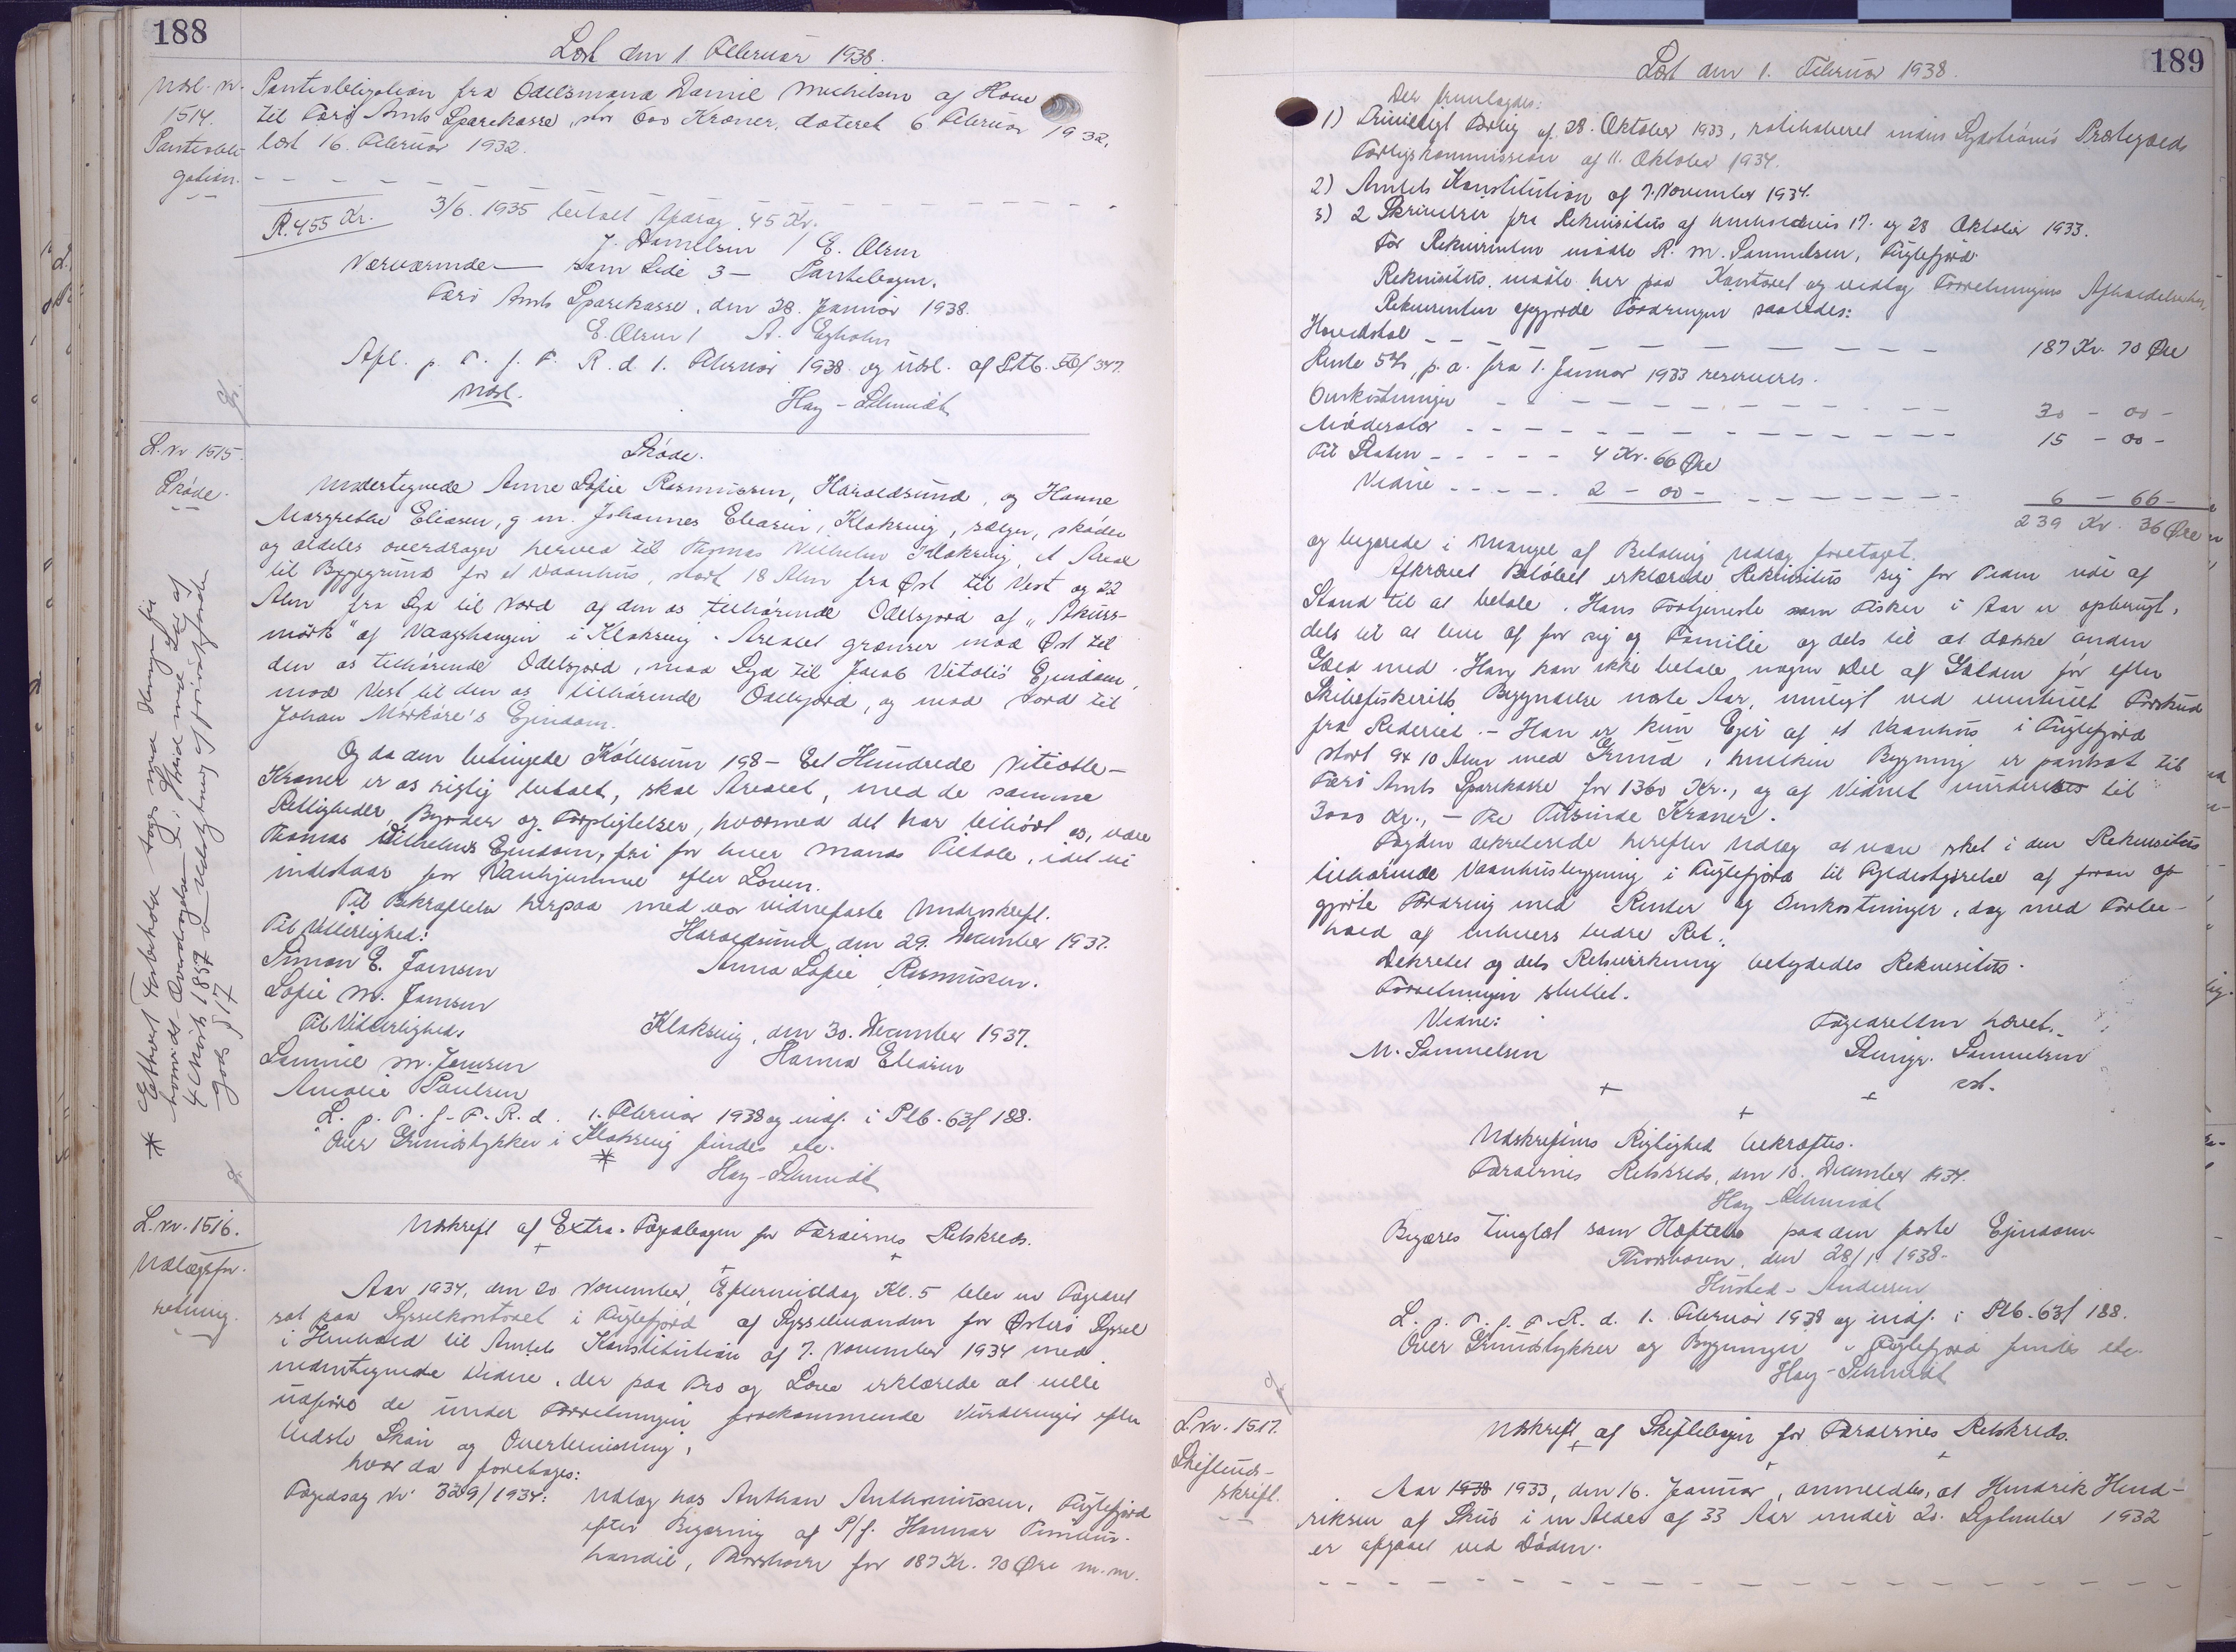 188
Læst den 1 Februar 1938.
Udsl. nr. 1514.
Pantobli-
gation.
Pantobligation fra Odelsmand Daniel Michelsen af Hove
til Færø Amts Sparekasse, stor 600 Kroner, dateret 6 Februar 1932,
læst 16. Februar 1932.
R. 455 Kr.
3/6. 1935 betalt Afdrag 45 Kr.
J. Danielsen / E. Olsen
Nærværende — som Side 3 — Pantebogen.
Færø Amts Sparekasse, den 28. Januar 1938.
E. Olsen / A. Egholm
Afl. p. T. f. F. R. d 1. Februar 1938 og udsl. af Ptb.
Udsl.
Hay-Schmidt
L. nr 1515.
Skøde.
Skøde.
Undertegnede Anne Sofie Rasmussen, Haraldsund, og Hanne
Margrethe Eliasen, g. m. Johannes Eliasen, Klaksvig, sælger, skøder
og aldeles overdrager herved til Thomas Vilhelm Klaksvig, et Areal
til Byggegrund for et Vaanhus, stort 18 Alen fra Øst til Vest og 22
Alen fra Syd til Nord af den os tilhørende Odelsjord af "Akurs-
mørk" af Vaagshaugen i Klaksvig. Arealet grænser mod Øst til
den os tilhørende Odelsjord, mod Syd til Jacob Vitalis Ejendom,
mod Vest til den os tilhørende Odelsjord, og mod Nord til
Johan Mørkøre's Ejendom.
Og da den betingede Købesum 198 — Eet Hundrede Nitiotte —
Kroner er os rigtig betalt, skal Arealet, med de samme
Rettigheder, Byrder og Forpligtelser, hvormed det har tilhørt os, være
Thomas Vilhelms Ejendom, fri for hver Mands Tiltale, idet vi
indestaar for Vanhjemmel efter Loven.
Til Bekræftelse herpaa med vor vidnefaste Underskrift.
Til Vitterlighed:
Haraldsund, den 29. December 1937.
Simon E. Joensen
Anna Sofie Rasmussen.
Sofie M. Joensen
Til Vitterlighed:
Klaksvig, den 30. December 1937.
Samuel M. Joensen
Hanna Eliasen
Amalie Poulsen
L. p. T. f. F. R. d. 1. Februar 1938 og indf. i Plb. 63f 188.
Over Grundstykker i Klaksvig findes etc.
*
Hay-Schmidt
* Ethvert Forbehold tages mod Udlægning fra
hvorvidt Overdragelsen er i Strid med Lov af
4 Marts 1857 Udskiftning af privat Jorde-
gods § 17
L. nr. 1516.
Udlægsfor-
retning.
Udskrift af Extra-Fogedbogen for Færøernes Retskreds.
Aar 1934, den 20 November, Eftermiddag Kl. 5 blev en Fogedret
sat paa Sysselkontoret i Fuglefjord af Sysselmanden for Østerø Syssel
i Henhold til Amtets Konstitution af 7. November 1934 med
undertegnede Vidne, der paa Tro og Love erklærede at ville
udføre de under Forretningen forekommende Vurderinger efter
bedste Skøn og Overbevisning,
hvor da foretages:
Fogedsag Nr 329/1934:
Udlæg hos Anthon Anthoniussen, Fuglefjord
efter Begæring af P/f. Hannar Timbur-
handil, Thorshavn for 187 Kr. 70 Øre m.m.
189
Læst den 1. Februar 1938.
Der fremlagdes:
1) Privatligt Forlig af 28. Oktober 1933, ratihaberet inden Sydstrømø Præstegælds
Forligskommission af 11. Oktober 1934.
2) Amtets Konstitution af 7. November 1934.
3) 2 Skrivelser fra Rekvisitus af henholdsvis 17. og 28 Oktober 1933.
For Rekvirenten mødte R. M. Samuelsen, Fuglefjord.
Rekvisitus mødte her paa Kontoret og vedtog Forretningens Afholdelse her.
Rekvirenten opgjorde Fordringen saaledes:
Hovedstol - - - 187 Kr. 70 Øre
Rente 5%, p. a. fra 1. Januar 1933 reserveres.
Omkostninger - - - 30 - 00 -
Mødesalær - - - 15 - 00 -
Til Staten - - - 4 Kr. 66 Øre
Vidne - - - 2 - 00 - - - - 6 - 66 -
239 Kr. 36 Øre
og begærede i Mangel af Betaling Udlæg foretaget.
Afkrævet Beløbet erklærede Rekvisitus sig for Tiden ude af
Stand til at betale. Hans Fortjeneste som Fisker i Aar er opbrugt,
dels til at leve af for sig og Familie og dels til at dække anden
Gæld med. Han kan ikke betale nogen Del af Gælden før efter
Skibsfiskeriets Begyndelse næste Aar, muligt ved eventuelt Forskud
fra Rederiet. - Han er kun Ejer af et Vaanhus i Fuglefjord
stort 9 x 10 Alen med Grund, hvilken Bygning er pantsat til
Færø Amts Sparekasse for 1360 Kr., og af Vidnet vurderes til
3000 Kr., - Tre Tusinde Kroner.
Fogden dekreterede herefter Udlæg at være sket i den Rekvisitus
tilhørende Vaanhusbygning i Fuglefjord til Fyldestgørelse af foran op-
gjorte Fordring med Renter og Omkostninger, dog med Forbe-
hold af enhvers bedre Ret.
Dekretet og dets Retsvirkning betydedes Rekvisitus.
Forretningen sluttet.
Vidne:
Fogedretten hævet.
M. Samuelsen
Samuelsen
cst.
Udskriftens Rigtighed bekræftes.
Færøernes Retskreds, den 10. December 1934.
Hay-Schmidt
Begæres tinglæst som Hæftelse paa den førte Ejendom.
Thorshavn, den 28/1 1938.
Husted-Andersen
L. p. T. f. F. R. d. 1. Februar 1938 og indf. i Plb. 63f 188.
Over Grundstykker og Bygninger i Fuglefjord findes etc.
Hay-Schmidt
L. nr. 1517.
Skifteud-
skrift.
Udskrift af Skiftebogen for Færøernes Retskreds.
Aar 1938 1933, den 16. Januar, anmeldtes, at Hendrik Hend-
riksen af Skuø i en Alder af 33 Aar under 20. September 1932
er afgaaet ved Døden.